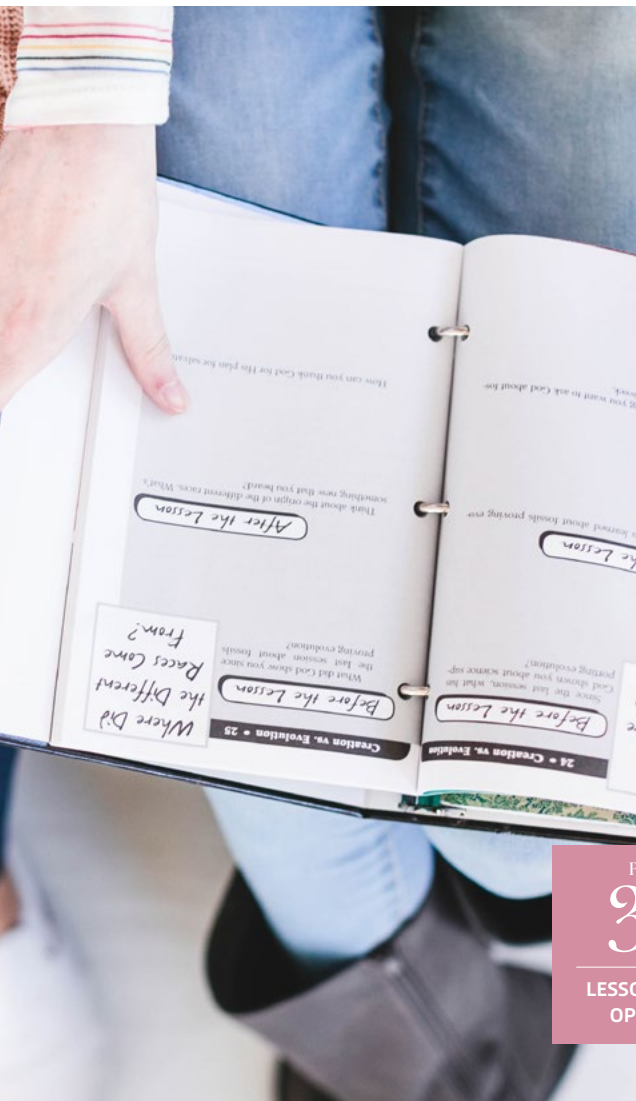 Creation vs. Evolution • 25
Where Did
the Different
Races Come
From?
Before the Lesson
What did God show you since
the last session about fossils
proving evolution?
After the Lesson
Think about the origin of the different races. What's
something new that you heard?
How can you thank God for His plan for
24 • Creation vs. Evolution
Before the Lesson
Since the last session, what has
God shown you about science sup-
porting evolution?
Lesson
learned about fossils proving
you want to ask God about for
LESSO
OP